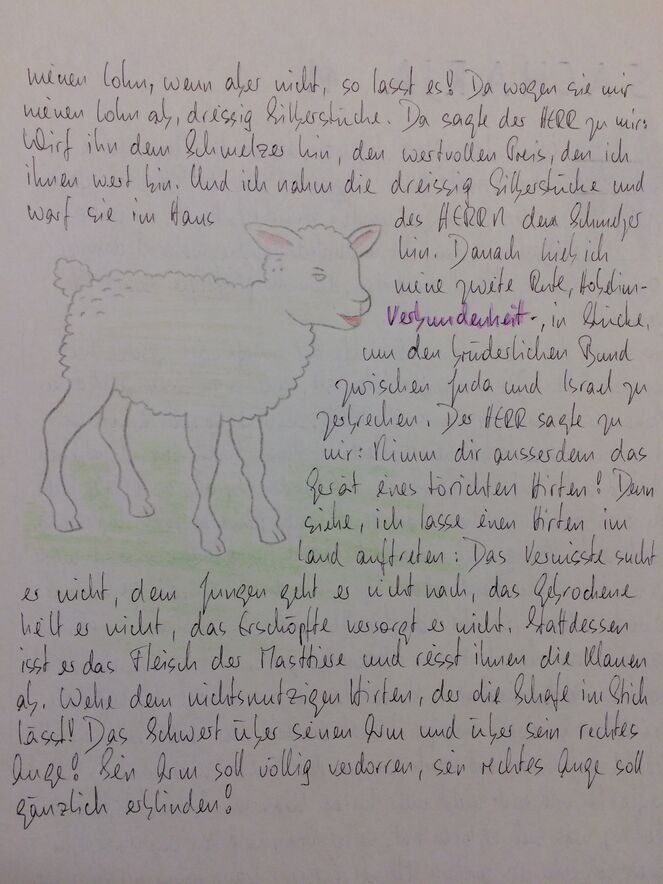 meinen Lohn, wenn aber nicht, so lasst es! Da wogen sie mir
meinen Lohn ab, dreissig Silberstücke. Da sagte der HERR zu mir:
Wirf ihn dem Schmelzer hin, den wertvollen Preis, den ich
ihnen wert bin. Und ich nahm die dreissig Silberstücke und
warf sie im Haus des HERRN dem Schmelzer
hin. Danach hieb ich
meine zweite Rute,
Verbundenheit-, in Stücke,
um den brüderlichen Bund
zwischen Juda und Israel zu
zerbrechen. Der HERR sagte zu
mir: Nimm dir ausserdem das
Gerät eines törichten Hirten! Denn
siehe, ich lasse einen Hirten im
Land auftreten: Das Vermisste sucht
er nicht, dem Jungen geht er nicht nach, das Gebrochene
heilt er nicht, das Erschöpfte versorgt er nicht. Stattdessen
isst er das Fleisch der Masttiere und reisst ihnen die Klauen
ab. Wehe dem nichtsnutzigen Hirten, der die Schafe im Stich
lässt! Das Schwert über seinen Arm und über sein rechtes
Auge! Sein Arm soll völlig verdorren, sein rechtes Auge soll
gänzlich erblinden!